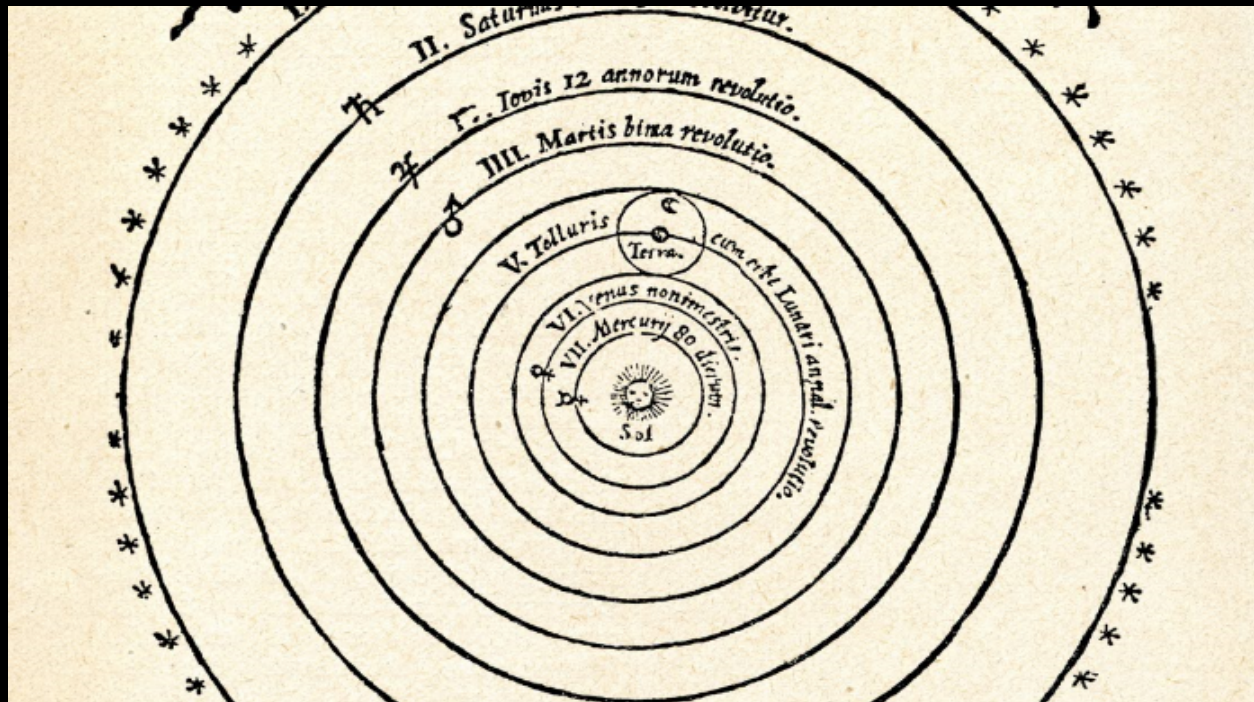 I.
II. Saturnus
Iovis 12 annorum revolutio.
IIII. Martis bima revolutio.
V. Telluris
cum orbe Lunari annal. revolutio.
Terra.
VI. Venus nonimestris.
VII. Mercurij 80 dierum.
Sol